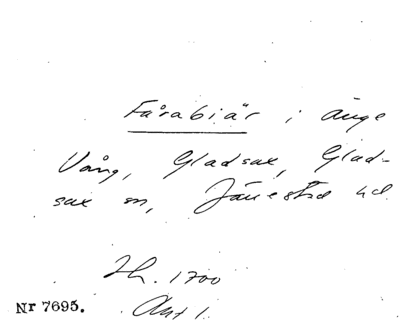 Fårabiär i änge
Vång, Gladsax, Glad-
sax sn, Järrestad hd.
Jb. 1700
Akt 1.
Nr 7695.